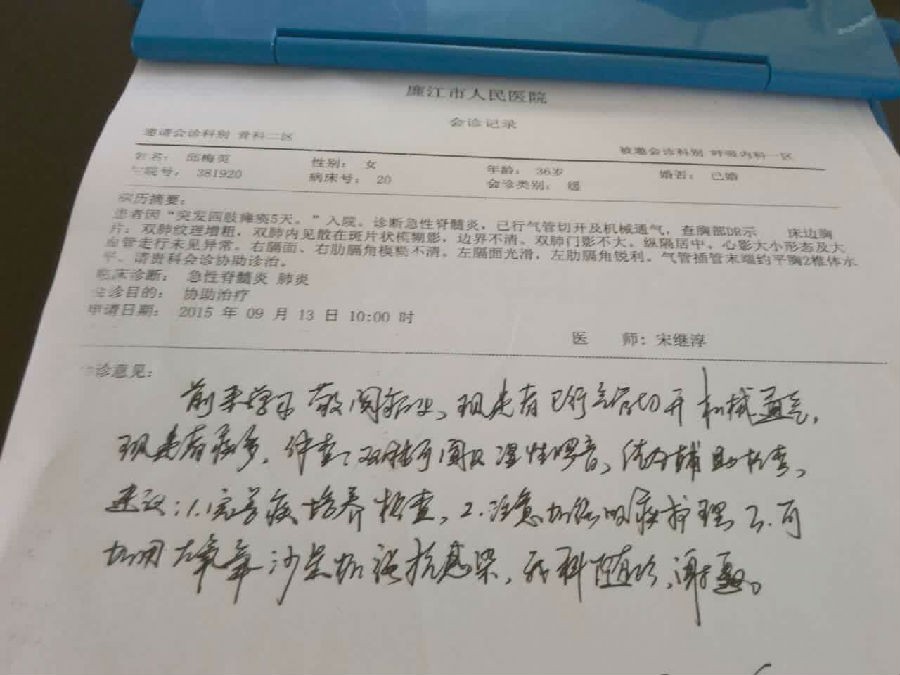 廉江市人民医院
会诊记录
邀请会诊科别 骨科二区 被邀会诊科别 呼吸内科一区
姓名: 邱梅英 性别: 女 年龄: 36岁 婚否: 已婚
住院号: 381920 病床号: 20 会诊类别: 缓
病历摘要:
患者因“突发四肢瘫痪5天。”入院。诊断急性脊髓炎,已行气管切开及机械通气,查胸部DR示 床边胸
片: 双肺纹理增粗,双肺内见散在斑片状模糊影,边界不清。双肺门影不大。纵隔居中,心影大小形态及大
血管走行未见异常。右隔面、右肋膈角模糊不清。左隔面光滑,左肋膈角锐利。气管插管末端约平胸2椎体水
平。请贵科会诊协助诊治。
临床诊断: 急性脊髓炎 肺炎
会诊目的: 协助治疗
申请日期: 2015 年 09 月 13 日 10:00 时
医 师: 宋继淳
诊意见:
敬阅病史,现患者已行气管切开机械通气,
现患者痰多,体查:双肺可闻及湿性啰音,辅助检查。
建议:1.完善痰培养检查,2.注意加强吸痰护理 3.可
加用左氧氟沙星加强抗感染,我科随诊,谢邀。